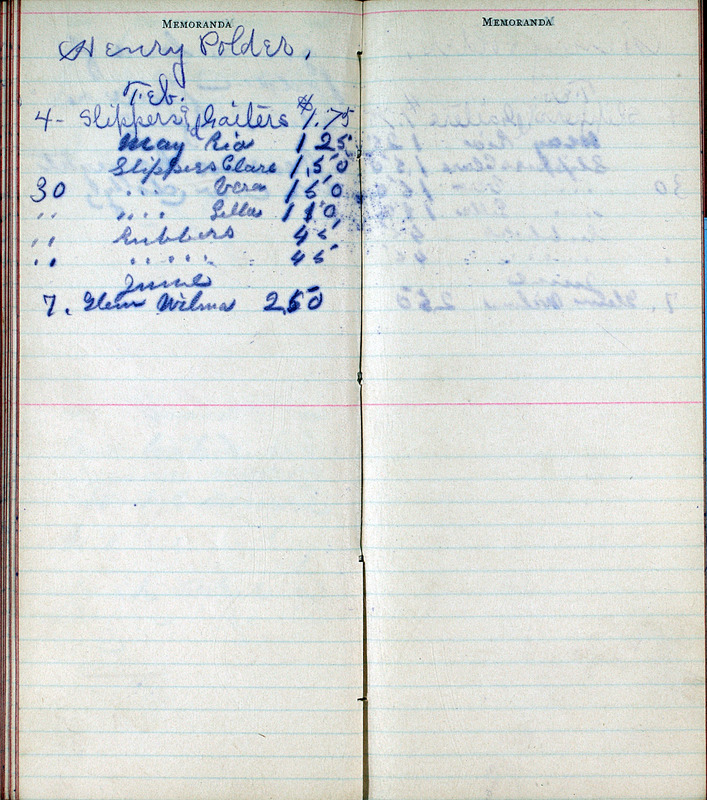 MEMORANDA
Henry Polder.
Feb.
4- Slippers & Gaiters $1.75
May Ria 1 25
Slippers Clare 1,50
30 " " Vera 1 50
" " " Lella 1 10
" Rubbers 45
" " " " " 45
June
7. Glenn Wilma 2,50
MEMORANDA